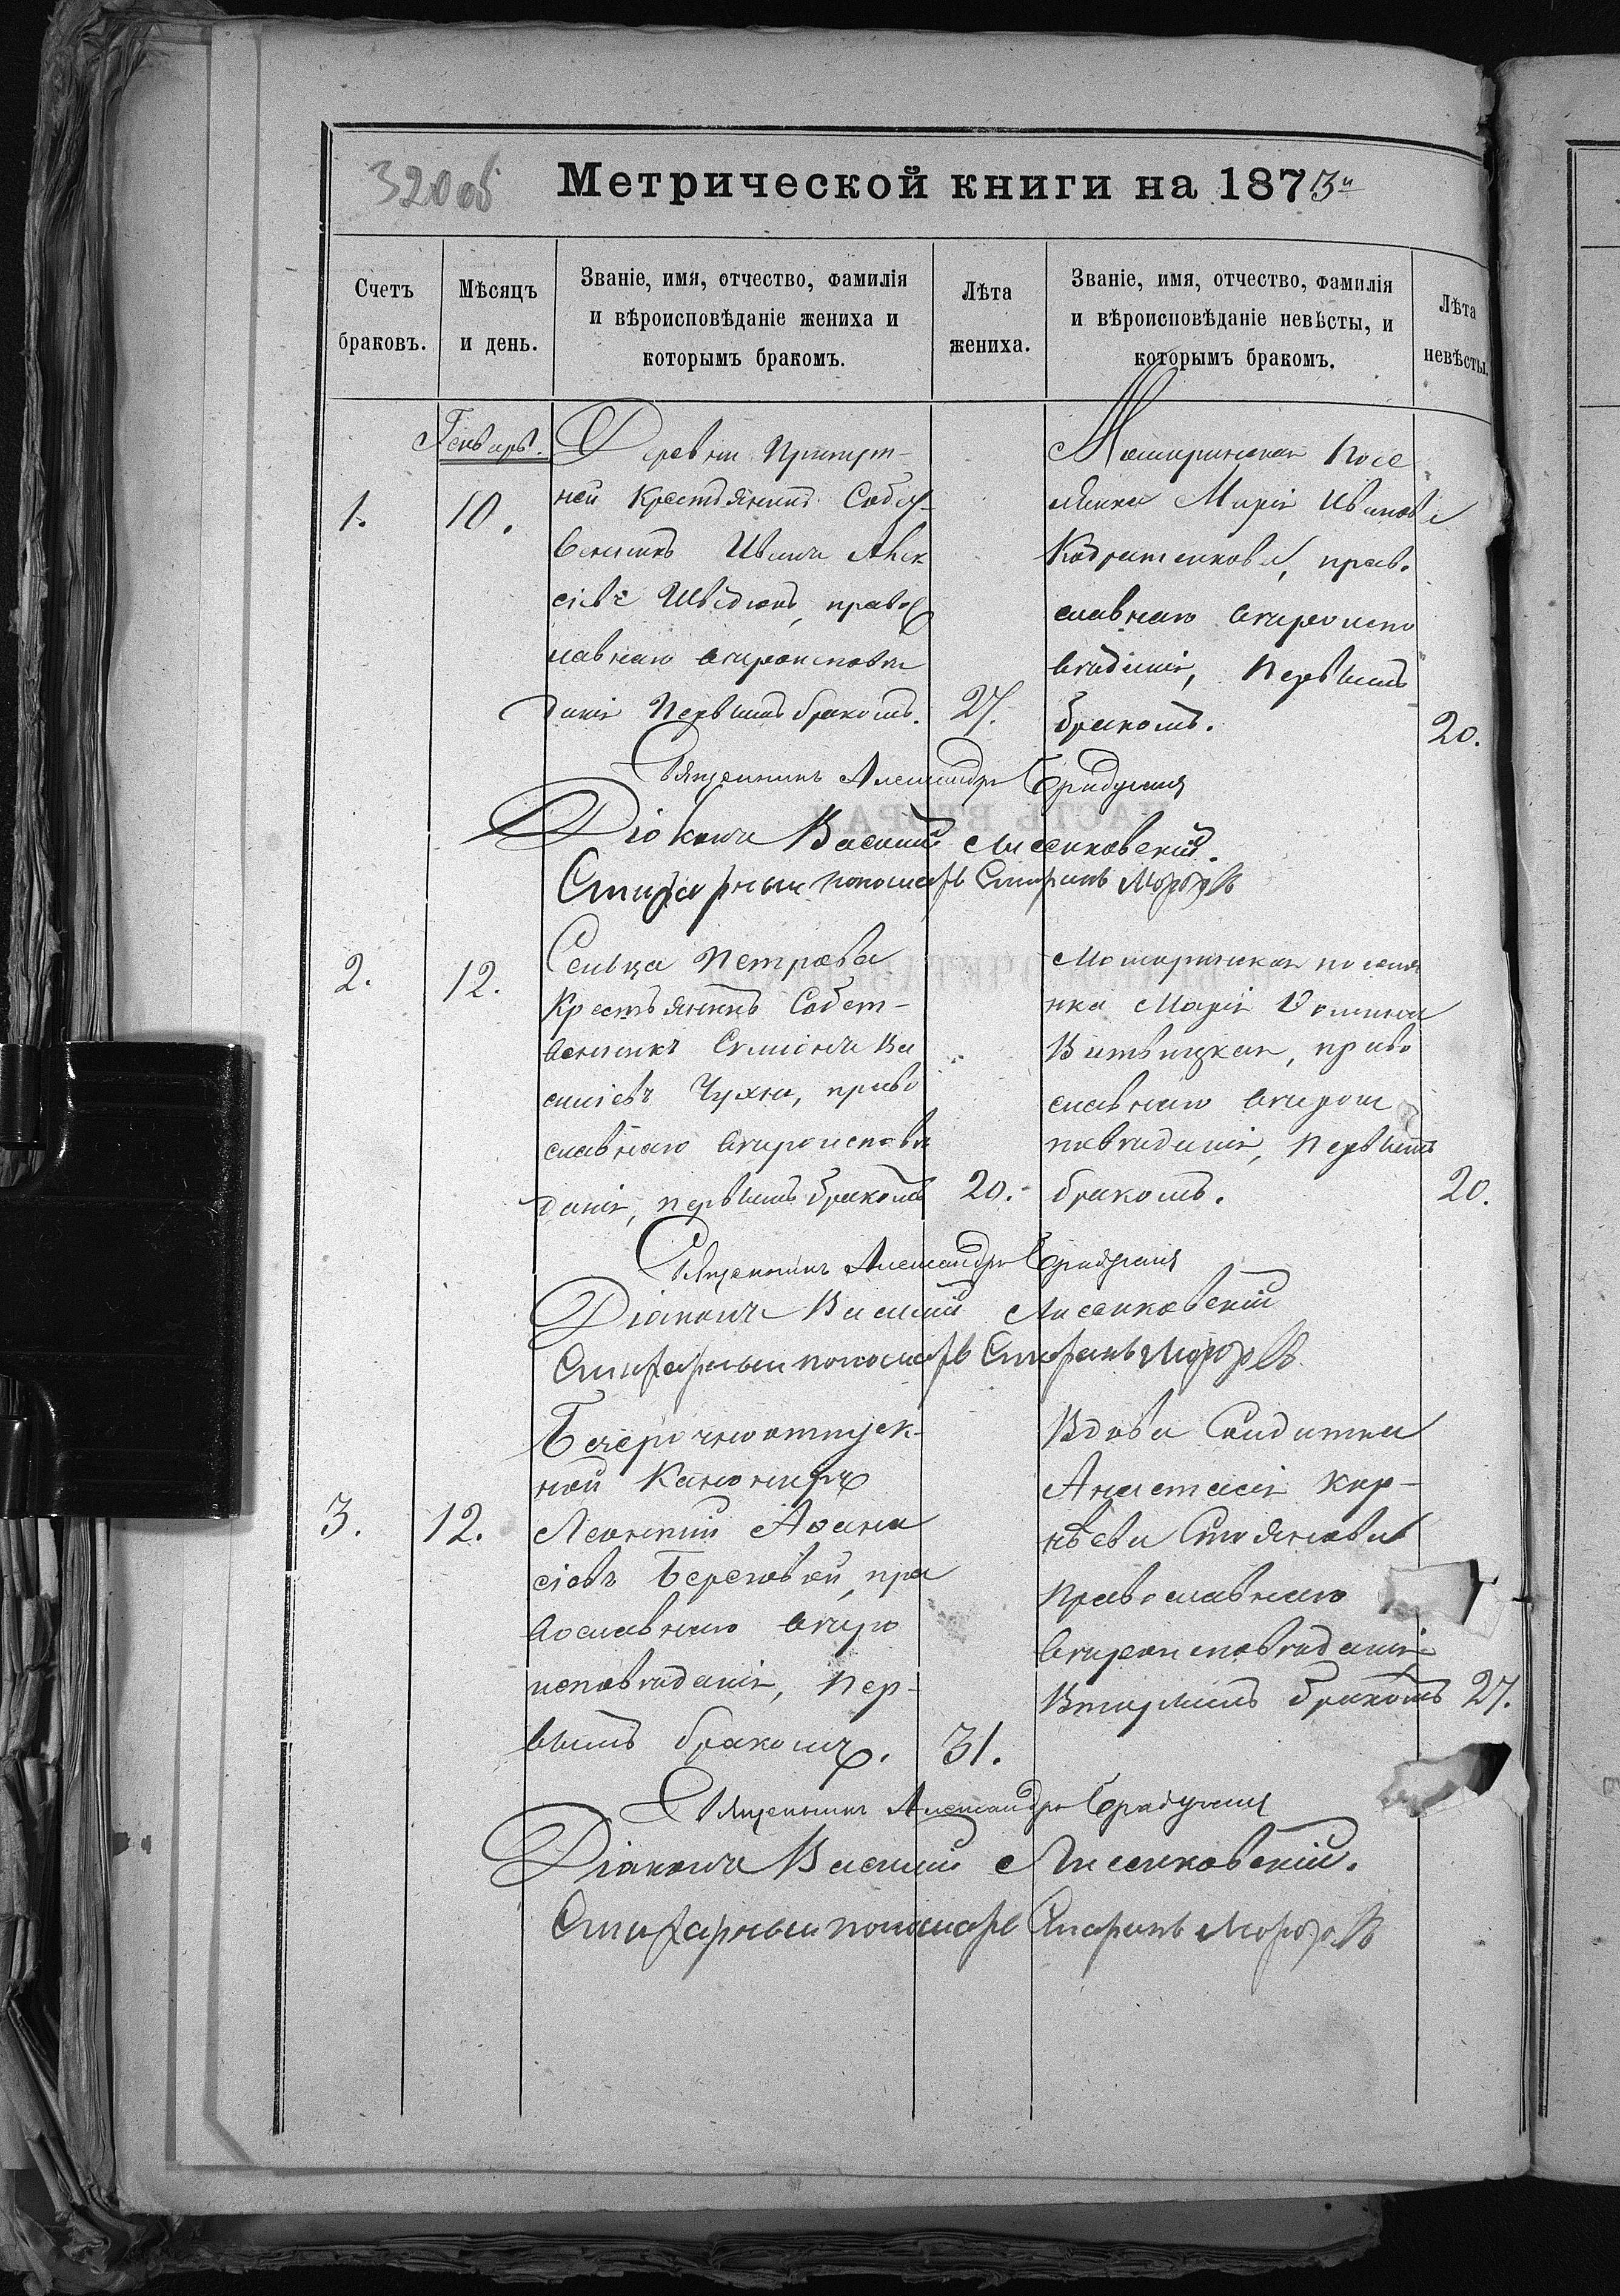 320 об
Метрической книги на 1873й
Счетъ браковъ.
Мѣсяцъ и день.
Званіе, имя, отчество, фамилія
и вѣроисповѣданіе жениха и
которымъ бракомъ.
Лѣта жениха.
Званіе, имя, отчество, фамилія
и вѣроисповѣданіе невѣсты, и
которымъ бракомъ.
Лѣта невѣсты.
Генварь.
1.
10.
Деревни
ной Крестьянинъ Собст-
венникъ Иванъ Алек
сіевъ Шведюкъ, правос
лавнаго вѣроисповѣ
данія Первымъ бракомъ.
27.
Посе
лянка Марія Иванова
Кодратенкова, право
славнаго вѣроиспо
вѣданія, Первымъ
бракомъ.
20.
Священникъ Александръ
Діаконъ Василій Лисенковскій.
Стихарный пономарь Морозъ
2.
12.
Сельца Петрова
Крестьянинъ Собст-
венникъ Симіонъ Ва
силіевъ Чухна, право
славнаго вѣроисповѣ
данія, первымъ бракомъ
20.
поселя
нка Марія Фомина
Витвицкая, право
славнаго вѣроис
повѣданія, Первымъ
бракомъ.
20.
Священникъ Александръ
Діаконъ Василій Лисенковскій
Стихарный пономарь Морозъ
3.
12.
Безсрочноотпуск-
ной Канониръ
Леонтій Аѳана
сіевъ Береговой, пра
вославнаго вѣро
исповѣданія, Пер-
вымъ бракомъ.
31.
Вдова Солдатка
Анастасія Кор-
нѣева Стоянова
Православнаго
вѣроисповѣданія
Вторымъ бракомъ
27.
Священникъ Александръ
Діаконъ Василій Лисенковскій.
Стихарный пономарь Морозъ